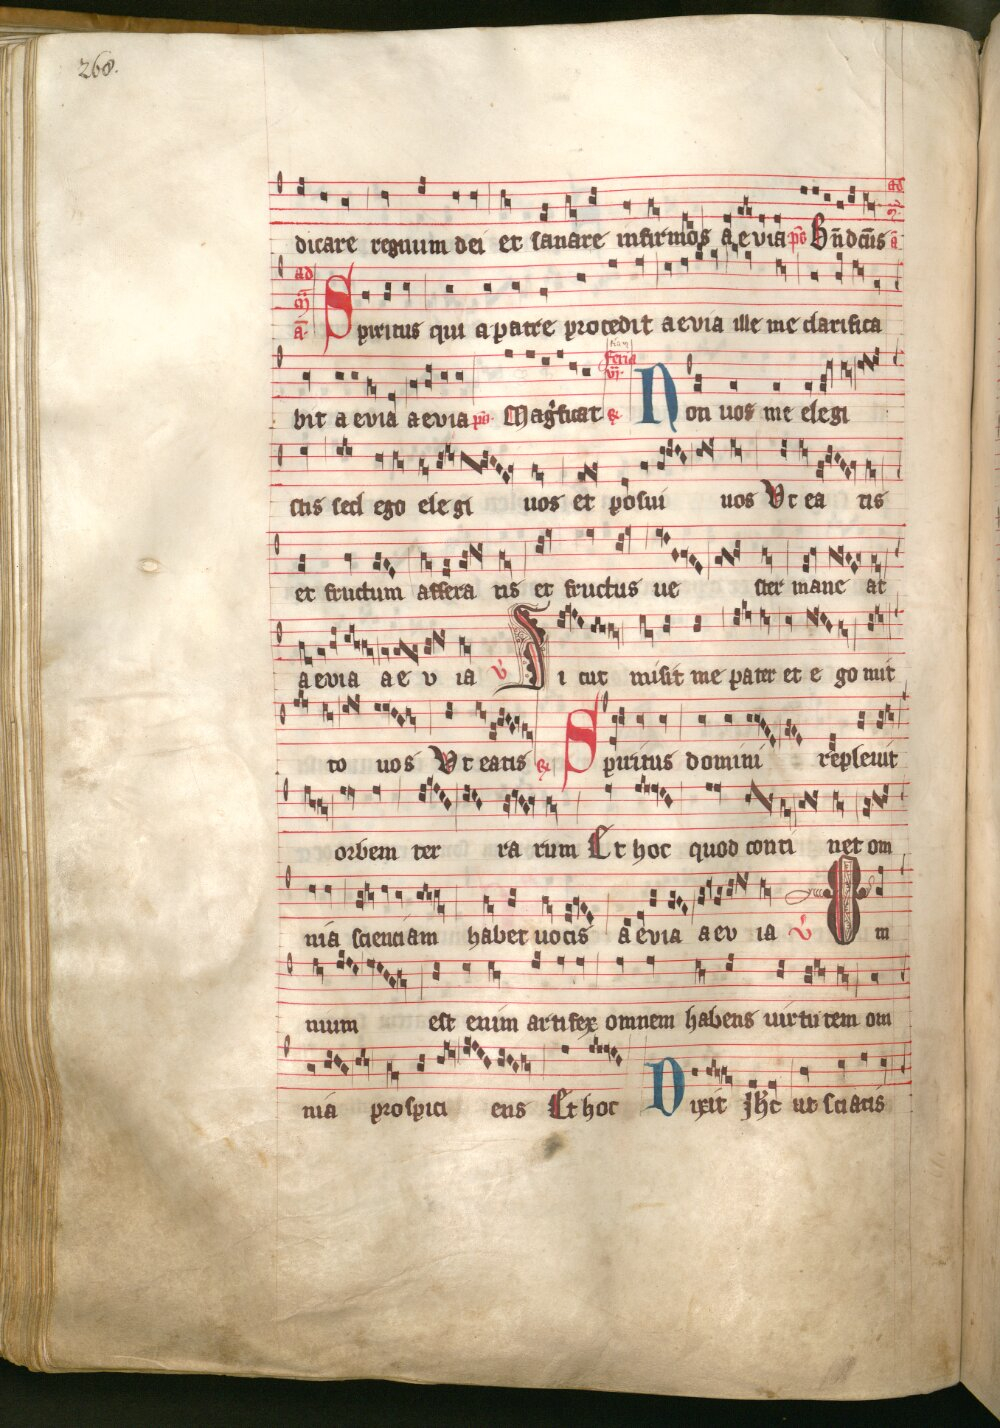 268.
dicare regnum dei et sanare infirmos aevia ps Bñdcũs ad
ad m̃ a Spiritus qui a patre procedit aevia ille me clarifica
bit aevia aevia ps Magficat feria vi. R Non uos me elegi
stis sed ego elegi uos et posui uos Vt ea tis
et fructum affera tis et fructus ue ster mane at
aevia ae v ia V Si cut misit me pater et e go mit
to uos Vt eatis R Spiritus domini repleuit
orbem ter ra rum Et hoc quod conti net om
nia scienciam habet uocis aevia aev ia V Om
nium est enim artifex omnem habens uirtutem om
nia prospici ens Et hoc Dixit Jhc ut sciatis